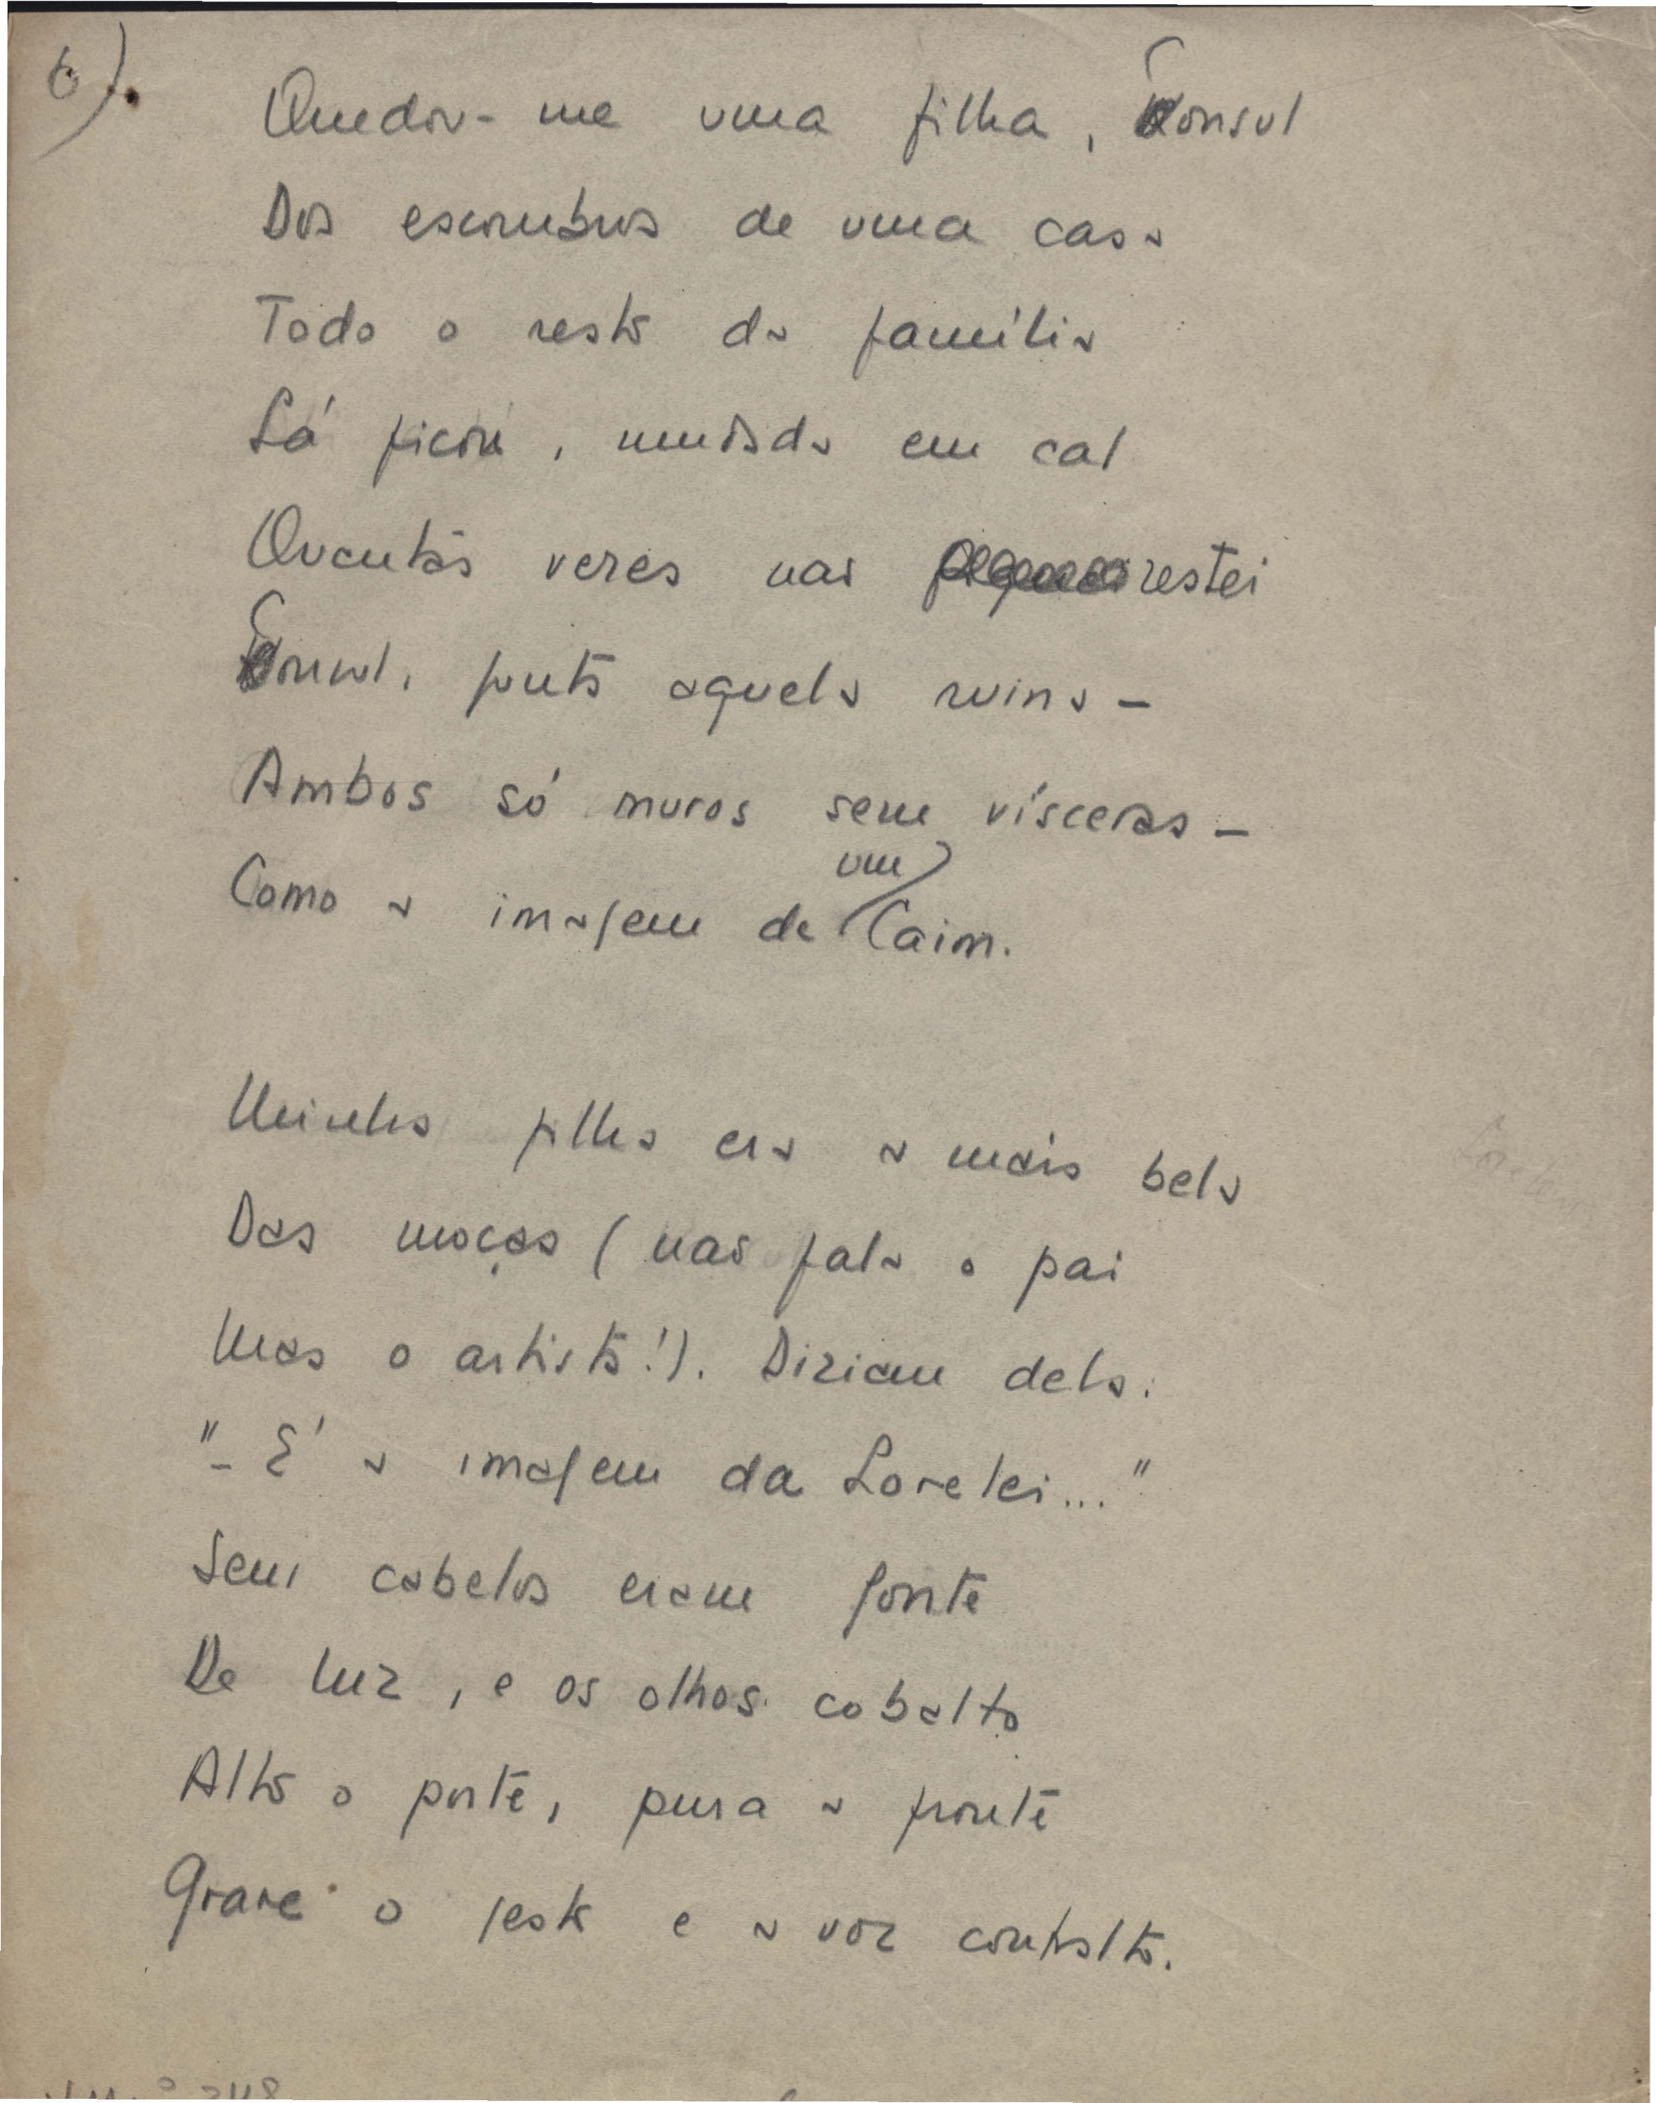 6).
Quedou-me uma filha, Consul
Dos escombros de uma casa
Todo o resto da família
Lá ficou, unida em cal
Quantas vezes não restei
Consul, junto aquela ruina –
Ambos só muros sem vísceras –
Como a imagem de um Caim.
Minha filha era a mais bela
Das moças (não fala o pai
Mas o artista!). Diziam dela:
"– É a imagem da Lorelei..."
Seus cabelos eram fonte
De luz, e os olhos cobalto
Alto o porte, pura a fronte
Grave o gesto e a voz contralto.